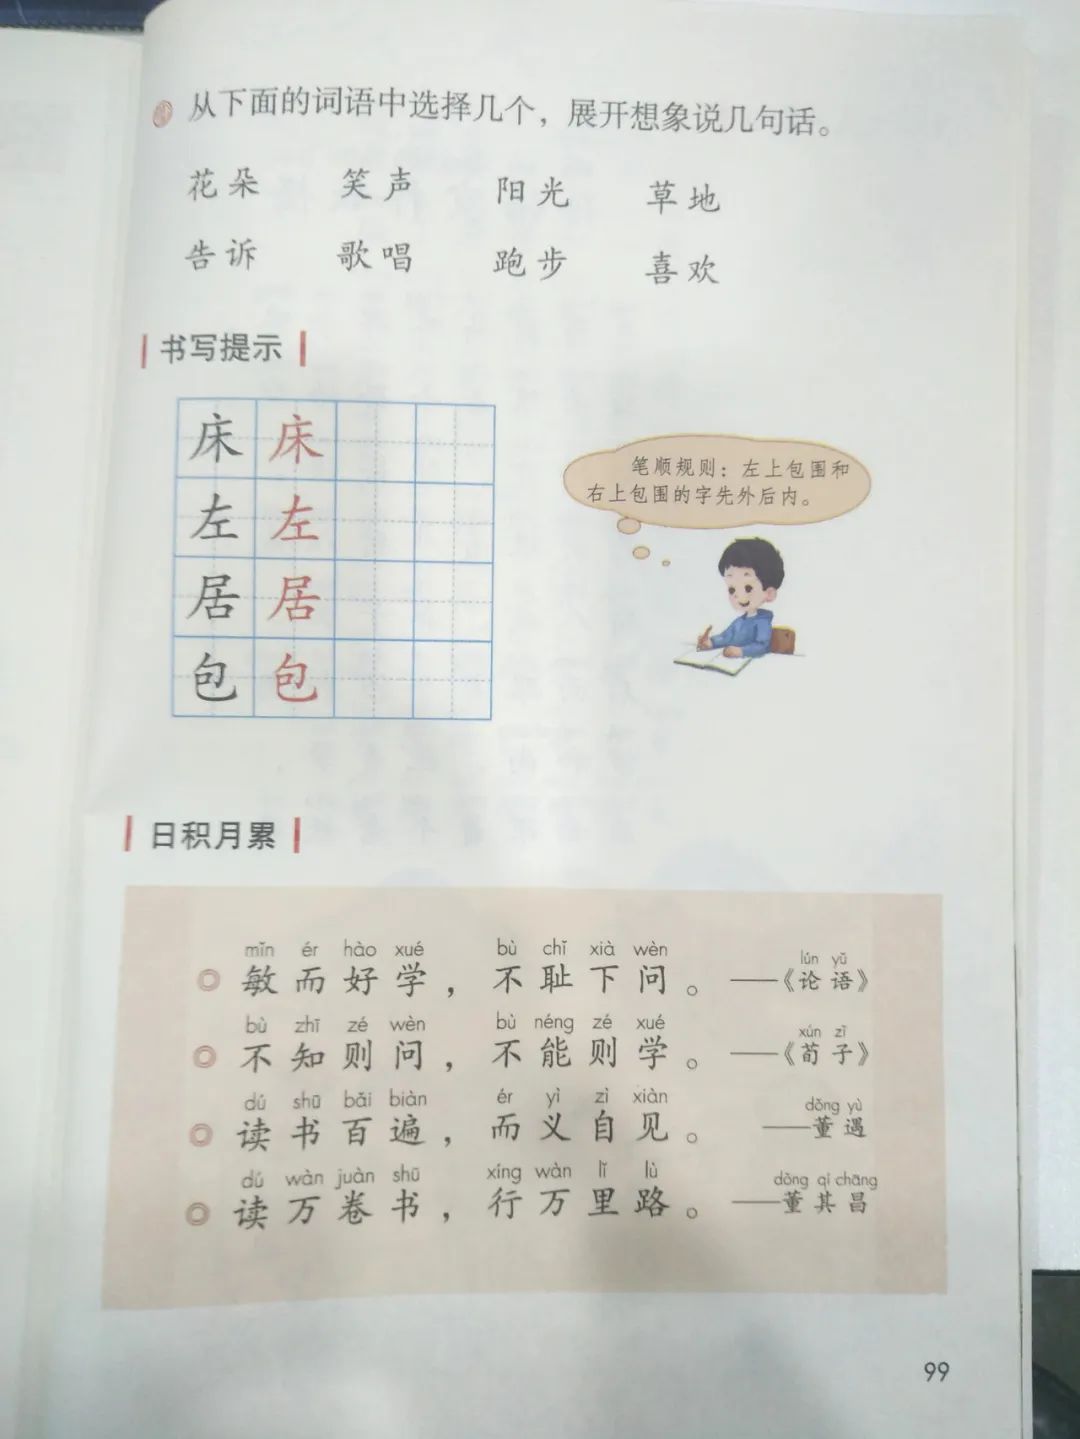 从下面的词语中选择几个，展开想象说几句话。
花朵 笑声 阳光 草地
告诉 歌唱 跑步 喜欢
书写提示
床 床
左 左
居 居
包 包
笔顺规则：左上包围和
右上包围的字先外后内。
日积月累
mǐn ér hào xué bù chǐ xià wèn lún yǔ
敏而好学，不耻下问。——《论语》
bù zhī zé wèn bù néng zé xué xún zǐ
不知则问，不能则学。——《荀子》
dú shū bǎi biàn ér yì zì xiàn dǒng yù
读书百遍，而义自见。——董遇
dú wàn juàn shū xíng wàn lǐ lù dǒng qí chāng
读万卷书，行万里路。——董其昌
99